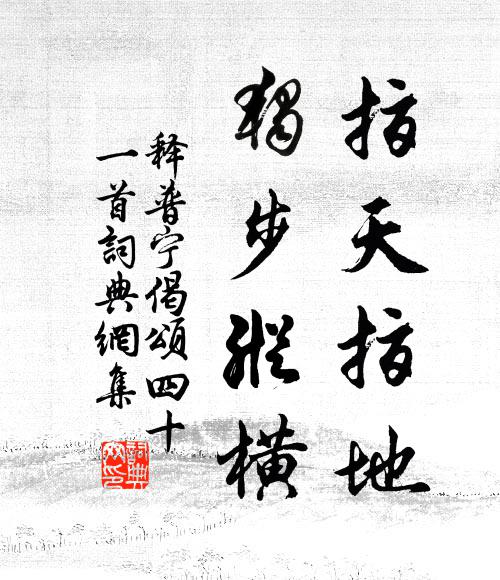 指天指地
獨步縱橫
释普宁偈頌四十
一首詞典網集